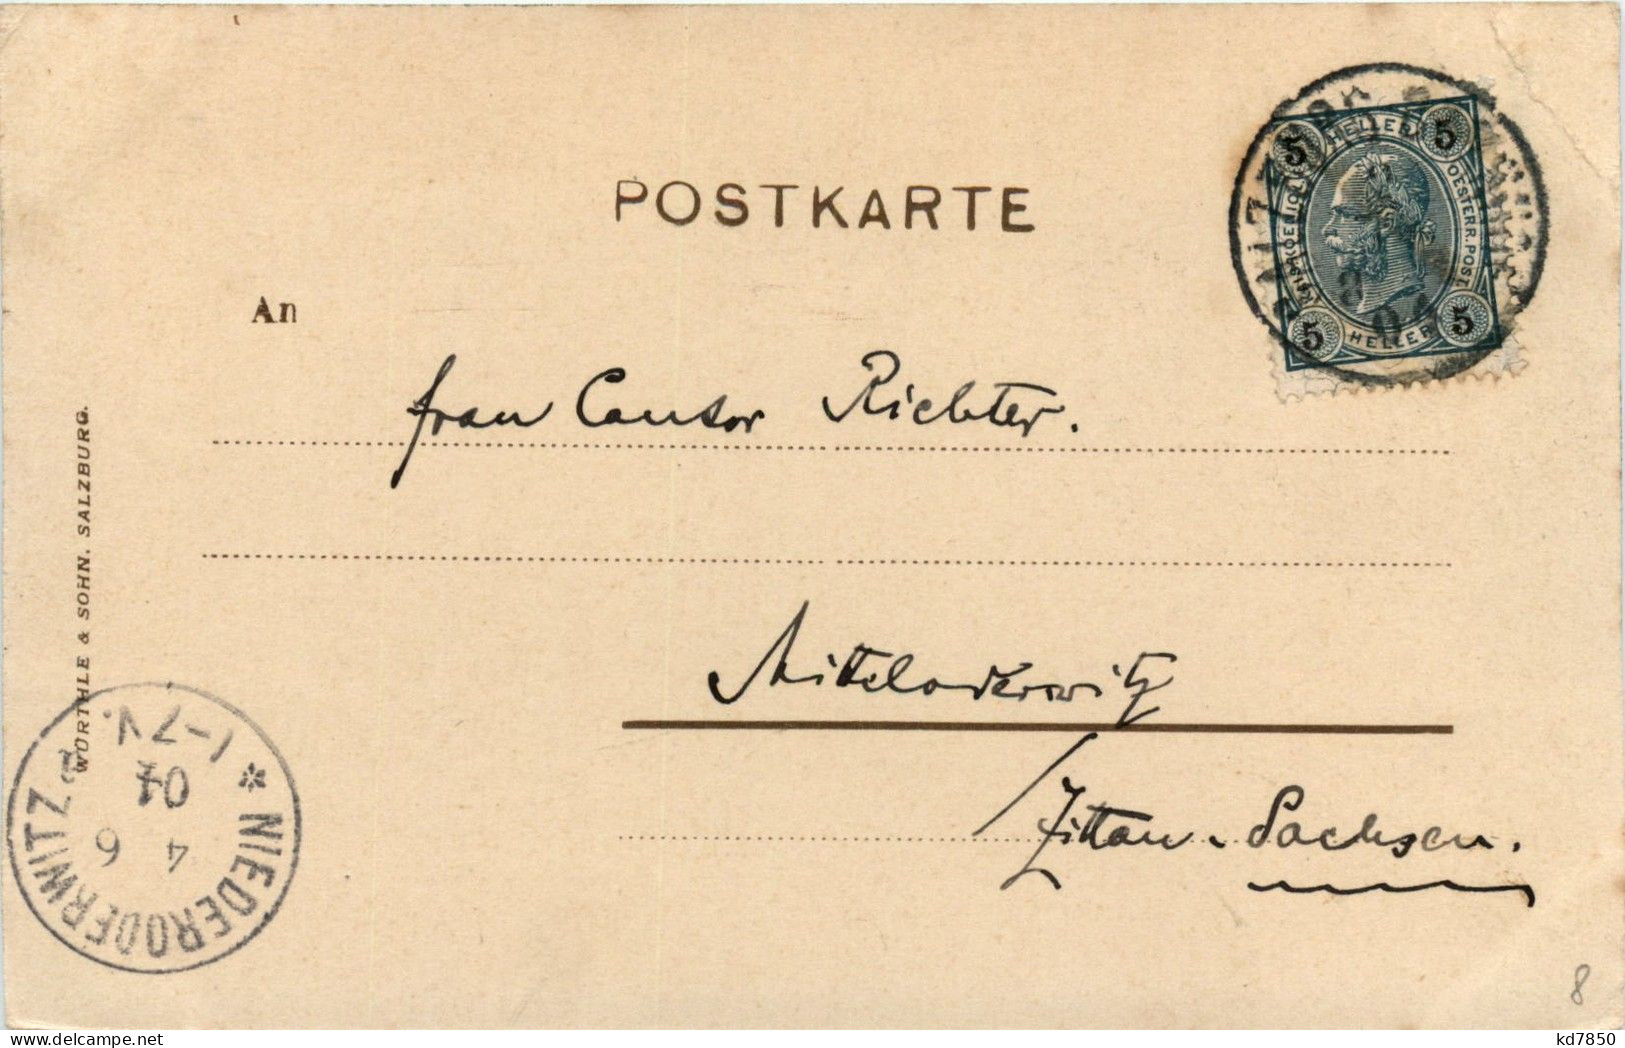 POSTKARTE
An
Frau Cantor Richter.
Mitteloderwitz
/Zittau. Sachsen.
WÜRTHLE & SOHN. SALZBURG.
5 HELLER 5
KAIS. KOENIGL. OESTERR. POST
5 HELLER 5
* NIEDERODERWITZ
4 6
04
1-7V.
8
kd7850